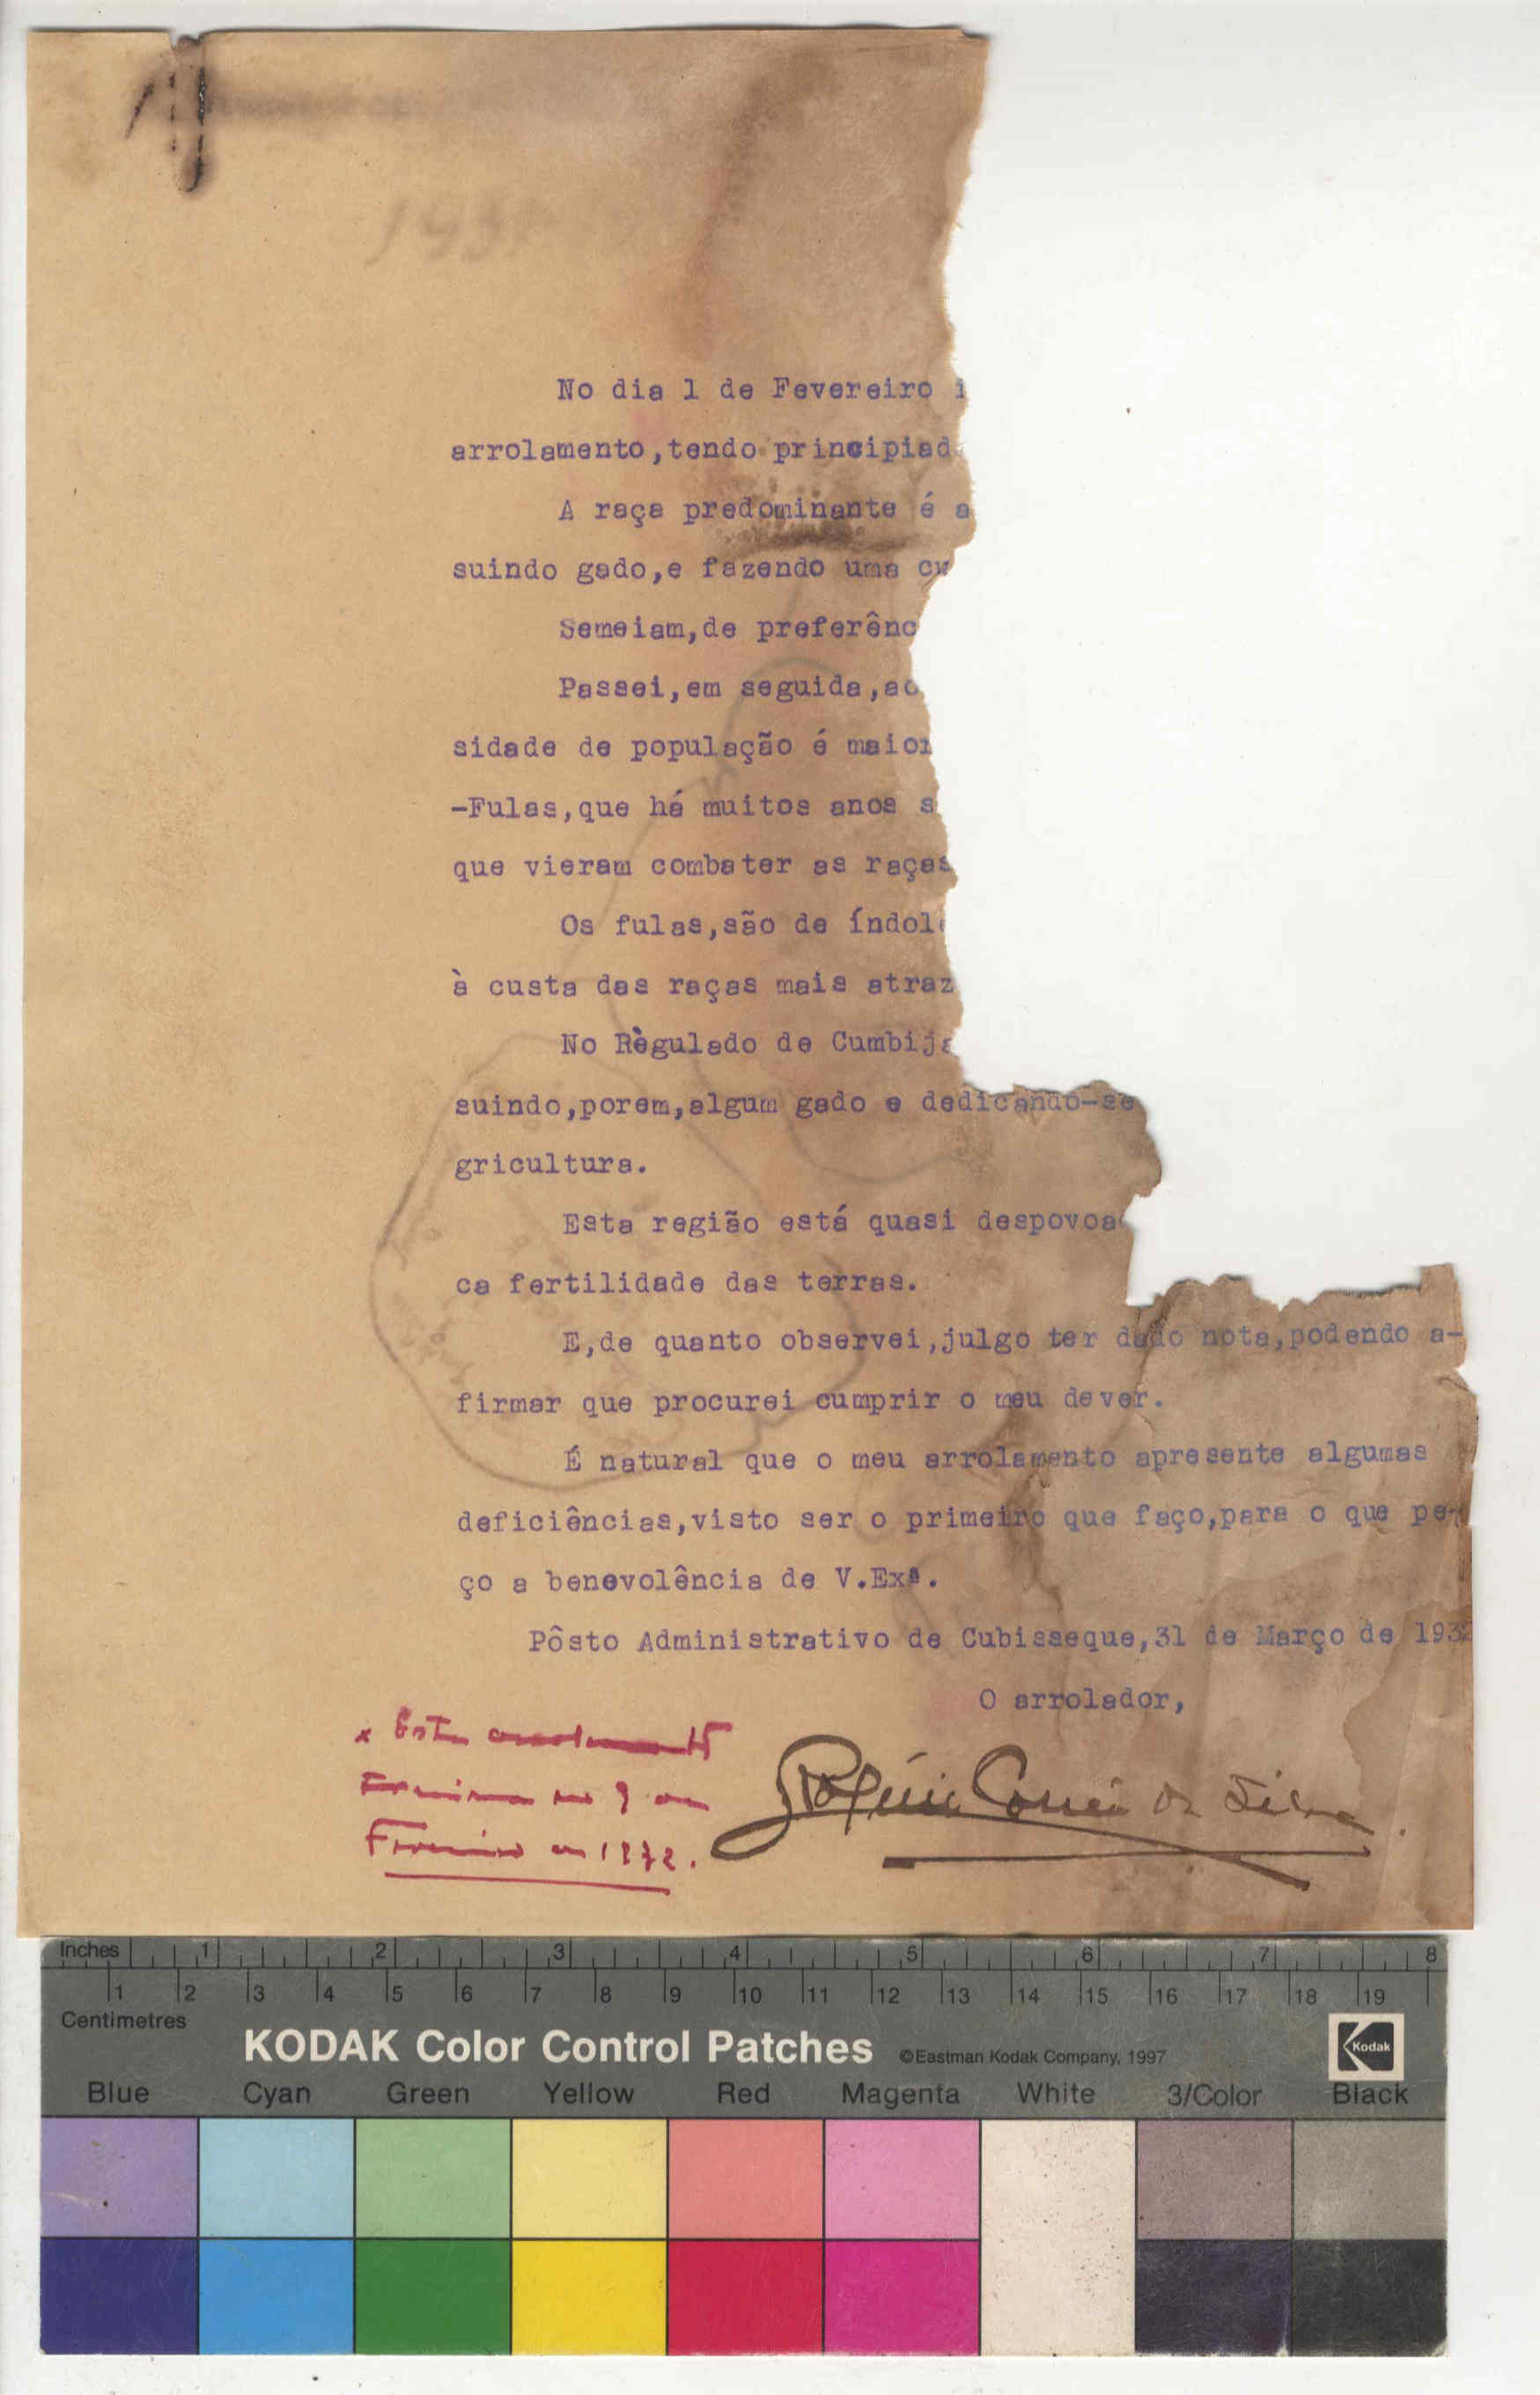 No dia 1 de Fevereiro
arrolamento,tendo principiad
A raça predominante é a
suindo gado,e fazendo uma cu
Semeiam,de preferênc
Passei,em seguida,ao
sidade de população é maior
-Fulas,que há muitos anos s
que vieram combater as raças
Os fulas,são de índol
à custa das raças mais atraz
No Règulado de Cumbija
suindo,porem,algum gado e dedicando-se
gricultura.
Esta região está quasi despovoa
ca fertilidade das terras.
E,de quanto observei,julgo ter dado nota,podendo a-
firmar que procurei cumprir o meu dever.
É natural que o meu arrolamento apresente algumas
deficiências,visto ser o primeiro que faço,para o que pe-
ço a benevolência de V.Exª.
Pôsto Administrativo de Cubisseque,31 de Março de 1932
O arrolador,
Rogério Correia da Silva
x Este arrolamento
9
Fevereiro
Inches 1 2 3 4 5 6 7 8
1 2 3 4 5 6 7 8 9 10 11 12 13 14 15 16 17 18 19
Centimetres
KODAK Color Control Patches ©Eastman Kodak Company, 1997 Kodak
Blue Cyan Green Yellow Red Magenta White 3/Color Black